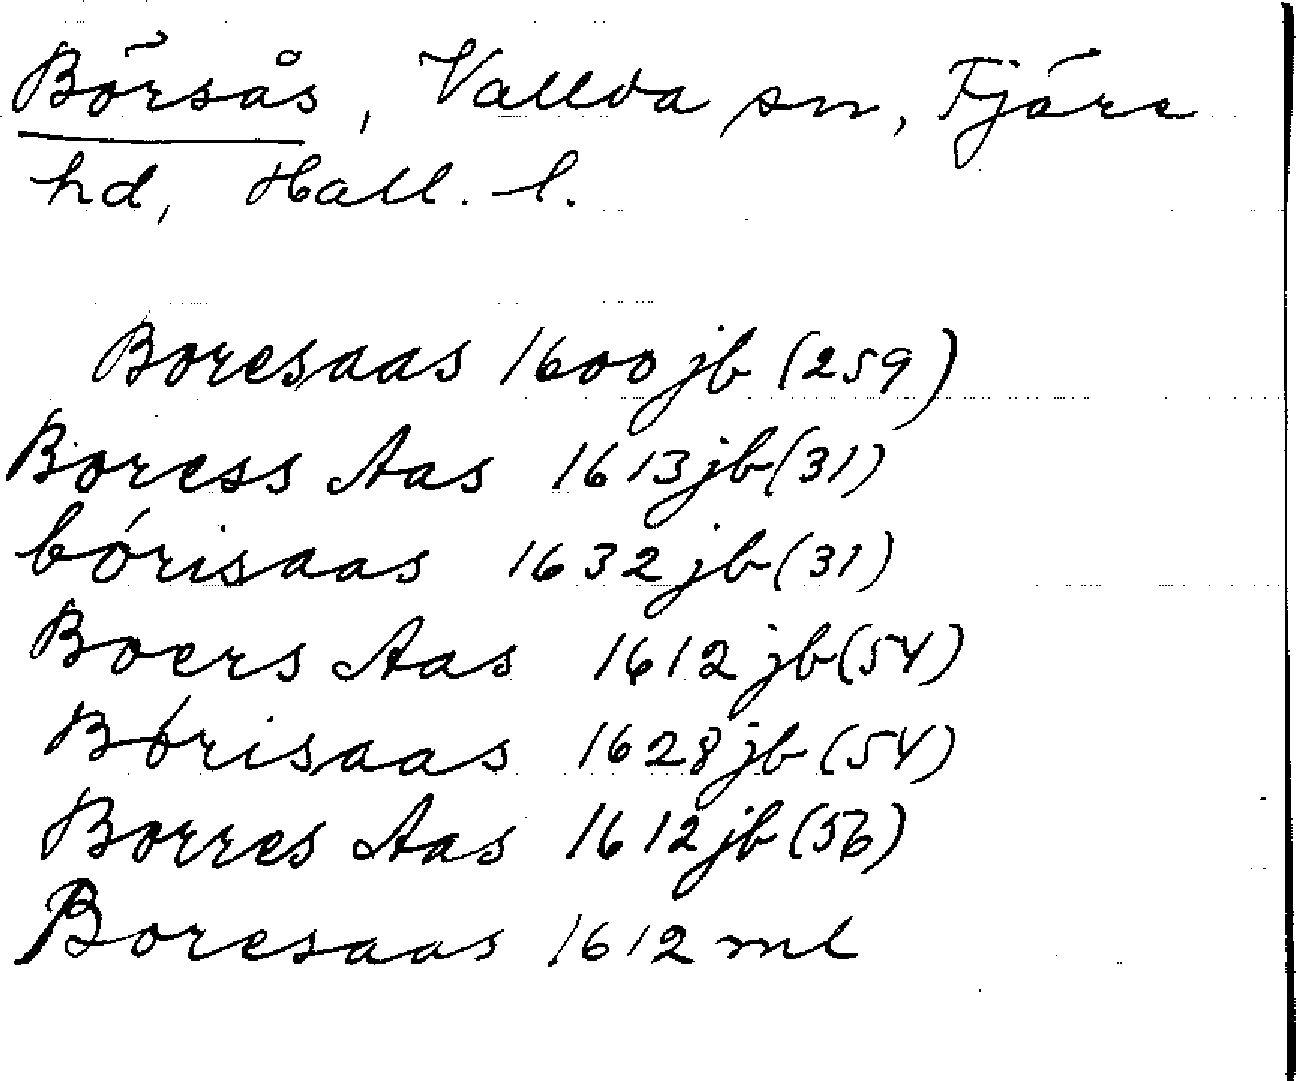 Börsås, Vallda sn, Fjäre
hd, Hall. l.
Boresaas 1600 jb (259)
Boress Aas 1613 jb (31)
bórisaas 1632 jb (31)
Boers Aas 1612 jb (54)
Bórisaas 1628 jb (54)
Borres Aas 1612 jb (56)
Boresaas 1612 ml